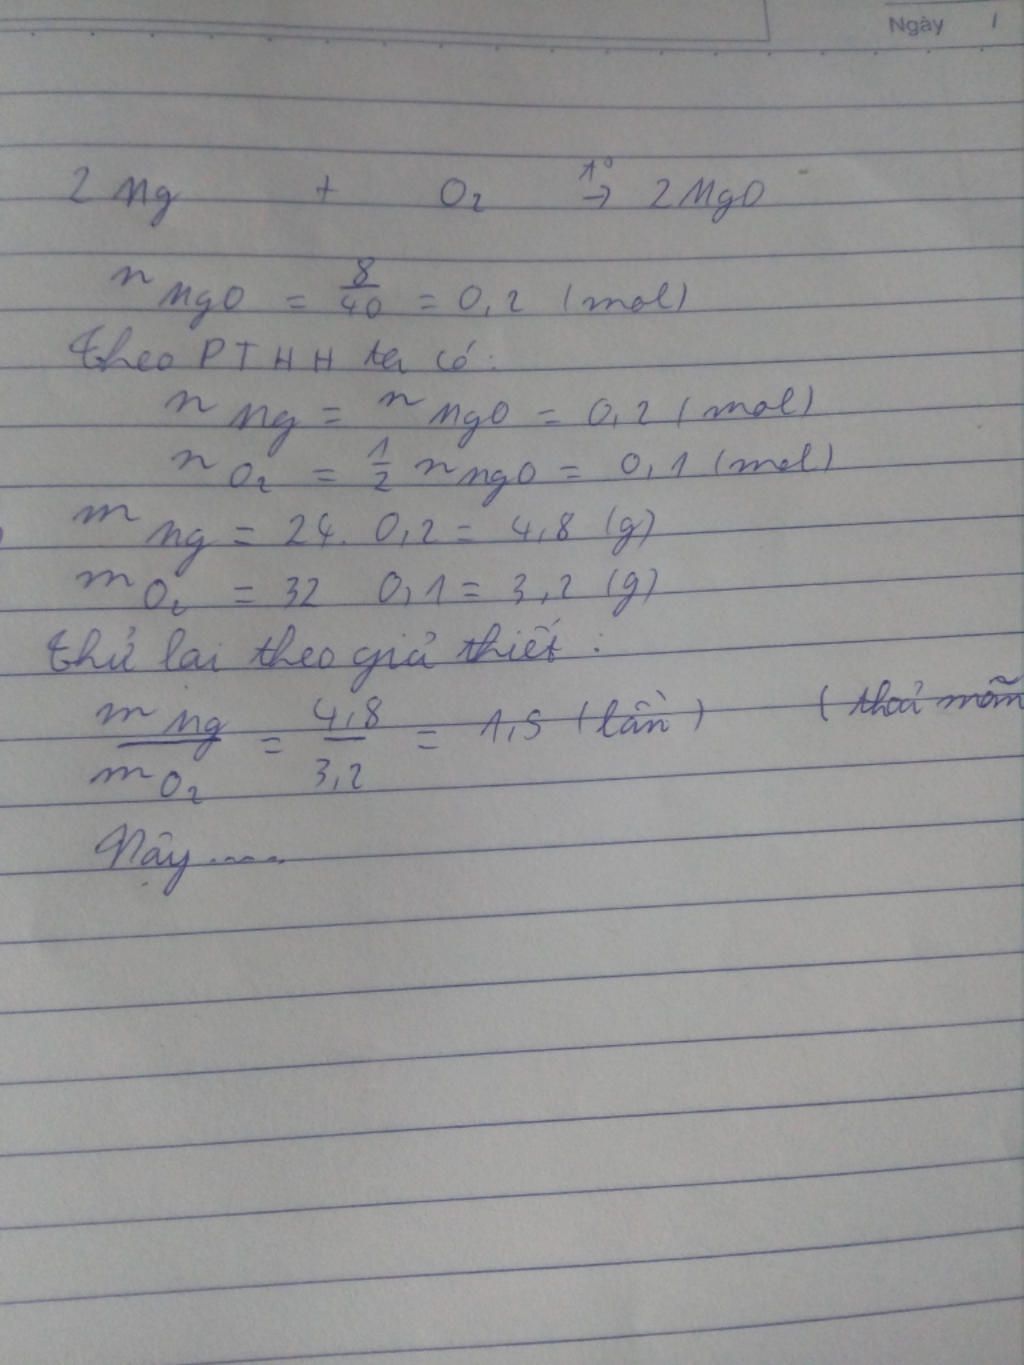 Ngày /
2 Mg + O2 t° → 2MgO
n MgO = 8/40 = 0,2 (mol)
Theo PTHH ta có:
n Mg = n MgO = 0,2 (mol)
n O2 = 1/2 n MgO = 0,1 (mol)
m Mg = 24. 0,2 = 4,8 (g)
m O2 = 32 0,1 = 3,2 (g)
Thử lại theo giả thiết :
m Mg / m O2 = 4,8 / 3,2 = 1,5 (lần) (thoả mãn
Vậy .....